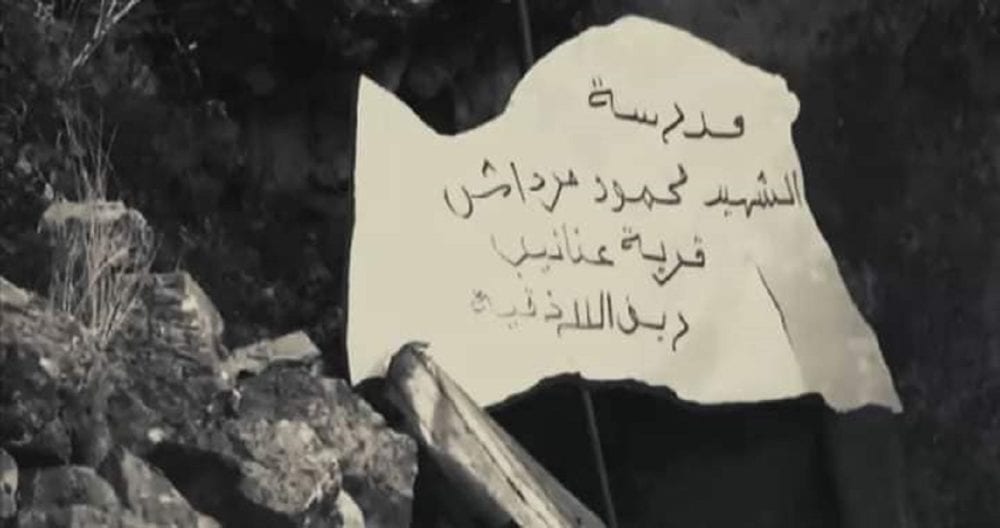 مدرسة
الشهيد محمود مرداش
قرية عنانيب
ريف اللاذقية